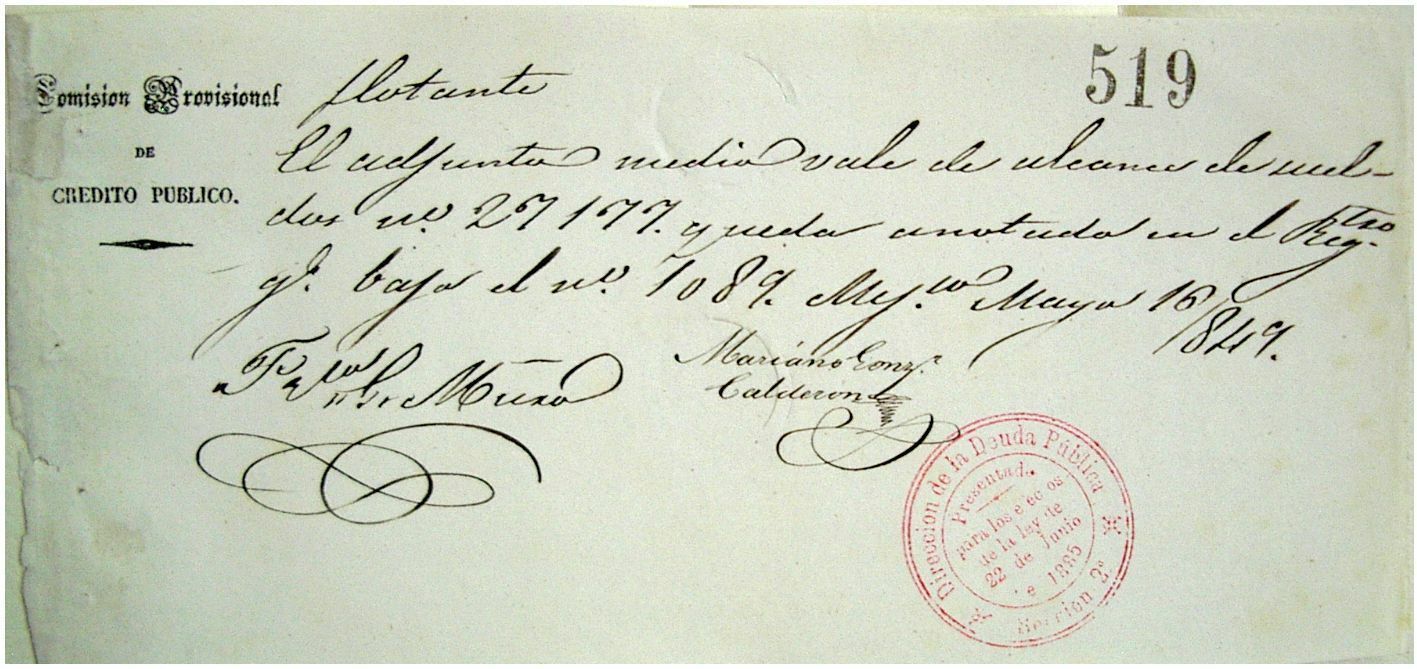 519
Comision Provisional
DE
CREDITO PUBLICO.
flotante
El adjunto medio vale de alcance de suel-
dos nº. 27177. queda anotado en el Regtro
gl. bajo el nº. 1089. Mej.co Mayo 16/849.
Mariano Gonz.
Calderon
Muro
Direccion de la Deuda Pública
Seccion 2ª
Presentad
para los e ec os
de la ley de
22 de Junio
e 1885